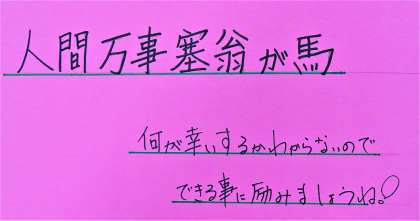 人間万事塞翁が馬
何が幸いするかわからないので
できる事に励みましょうね。